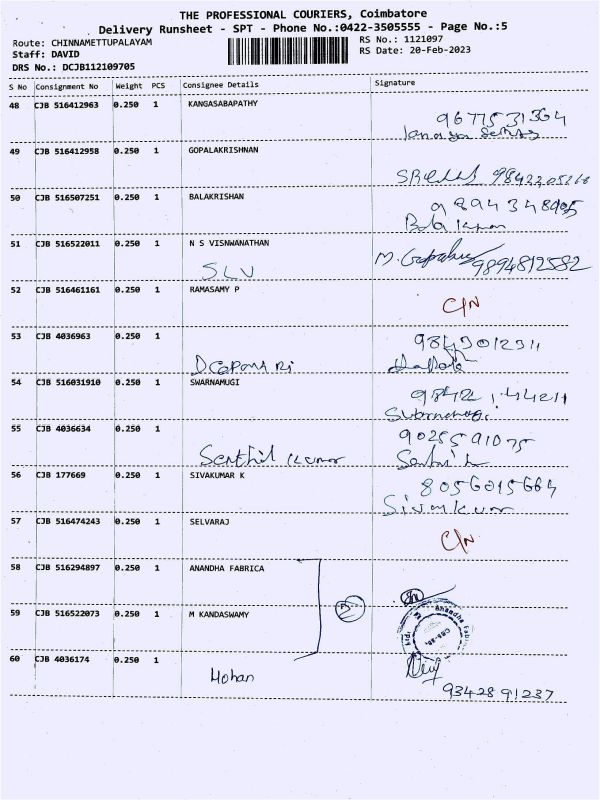 THE PROFESSIONAL COURIERS, Coimbatore
Delivery Runsheet - SPT - Phone No.:0422-3505555 - Page No.:5
Route: CHINNAMETTUPALAYAM
RS No.: 1121097
Staff: DAVID
RS Date: 20-Feb-2023
DRS No.: DCJB112109705
S No Consignment No Weight PCS Consignee Details Signature
48 CJB 516412963 0.250 1 KANGASABAPATHY
9677531364
49 CJB 516412958 0.250 1 GOPALAKRISHNAN
50 CJB 516507251 0.250 1 BALAKRISHAN
51 CJB 516522011 0.250 1 N S VISNWANATHAN
SLV M. 9894812582
52 CJB 516461161 0.250 1 RAMASAMY P
C/N
53 CJB 4036963 0.250 1
9843012311
54 CJB 516031910 0.250 1 SWARNAMUGI
55 CJB 4036634 0.250 1
9025591075
Senthil Kumar
56 CJB 177669 0.250 1 SIVAKUMAR K
8056015664
Sivakumar
57 CJB 516474243 0.250 1 SELVARAJ
C/N
58 CJB 516294897 0.250 1 ANANDHA FABRICA
2
59 CJB 516522073 0.250 1 M KANDASWAMY
60 CJB 4036174 0.250 1
Mohan
9342891237